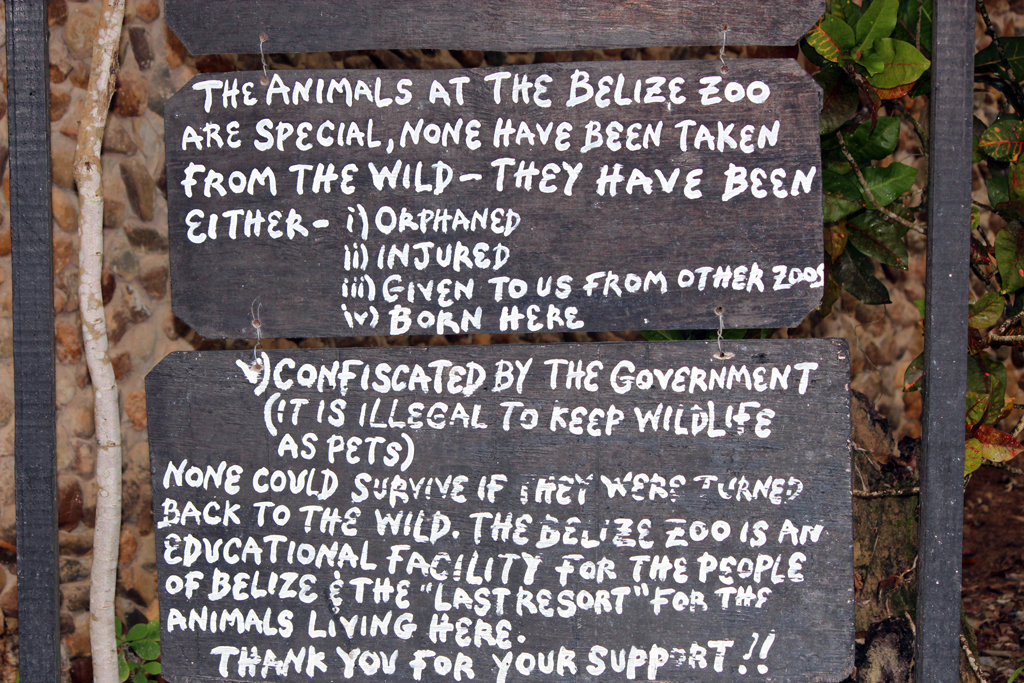 THE ANIMALS AT THE BELIZE ZOO
ARE SPECIAL, NONE HAVE BEEN TAKEN
FROM THE WILD - THEY HAVE BEEN
EITHER - i) ORPHANED
ii) INJURED
iii) GIVEN TO US FROM OTHER ZOOS
iv) BORN HERE
v) CONFISCATED BY THE GOVERNMENT
(IT IS ILLEGAL TO KEEP WILDLIFE
AS PETS)
NONE COULD SURVIVE IF THEY WERE TURNED
BACK TO THE WILD. THE BELIZE ZOO IS AN
EDUCATIONAL FACILITY FOR THE PEOPLE
OF BELIZE & THE "LAST RESORT" FOR THE
ANIMALS LIVING HERE.
THANK YOU FOR YOUR SUPPORT!!